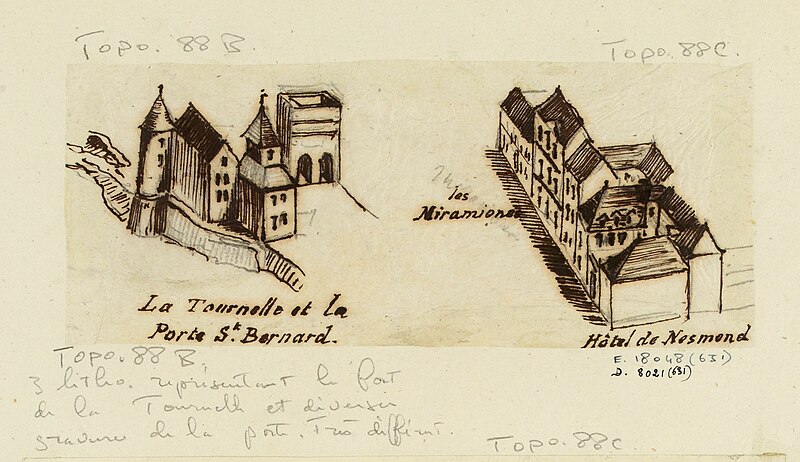 Topo. 88 B.
Topo. 88C.
les
Miramiones
La Tournelle et la
Porte St. Bernard.
Hôtel de Nesmond
E. 18048 (631)
D. 8021 (631)
Topo. 88 B
3 litho. représentant le fort
de la Tournelle et diverses
gravures de la porte. Très différent.
Topo. 88C